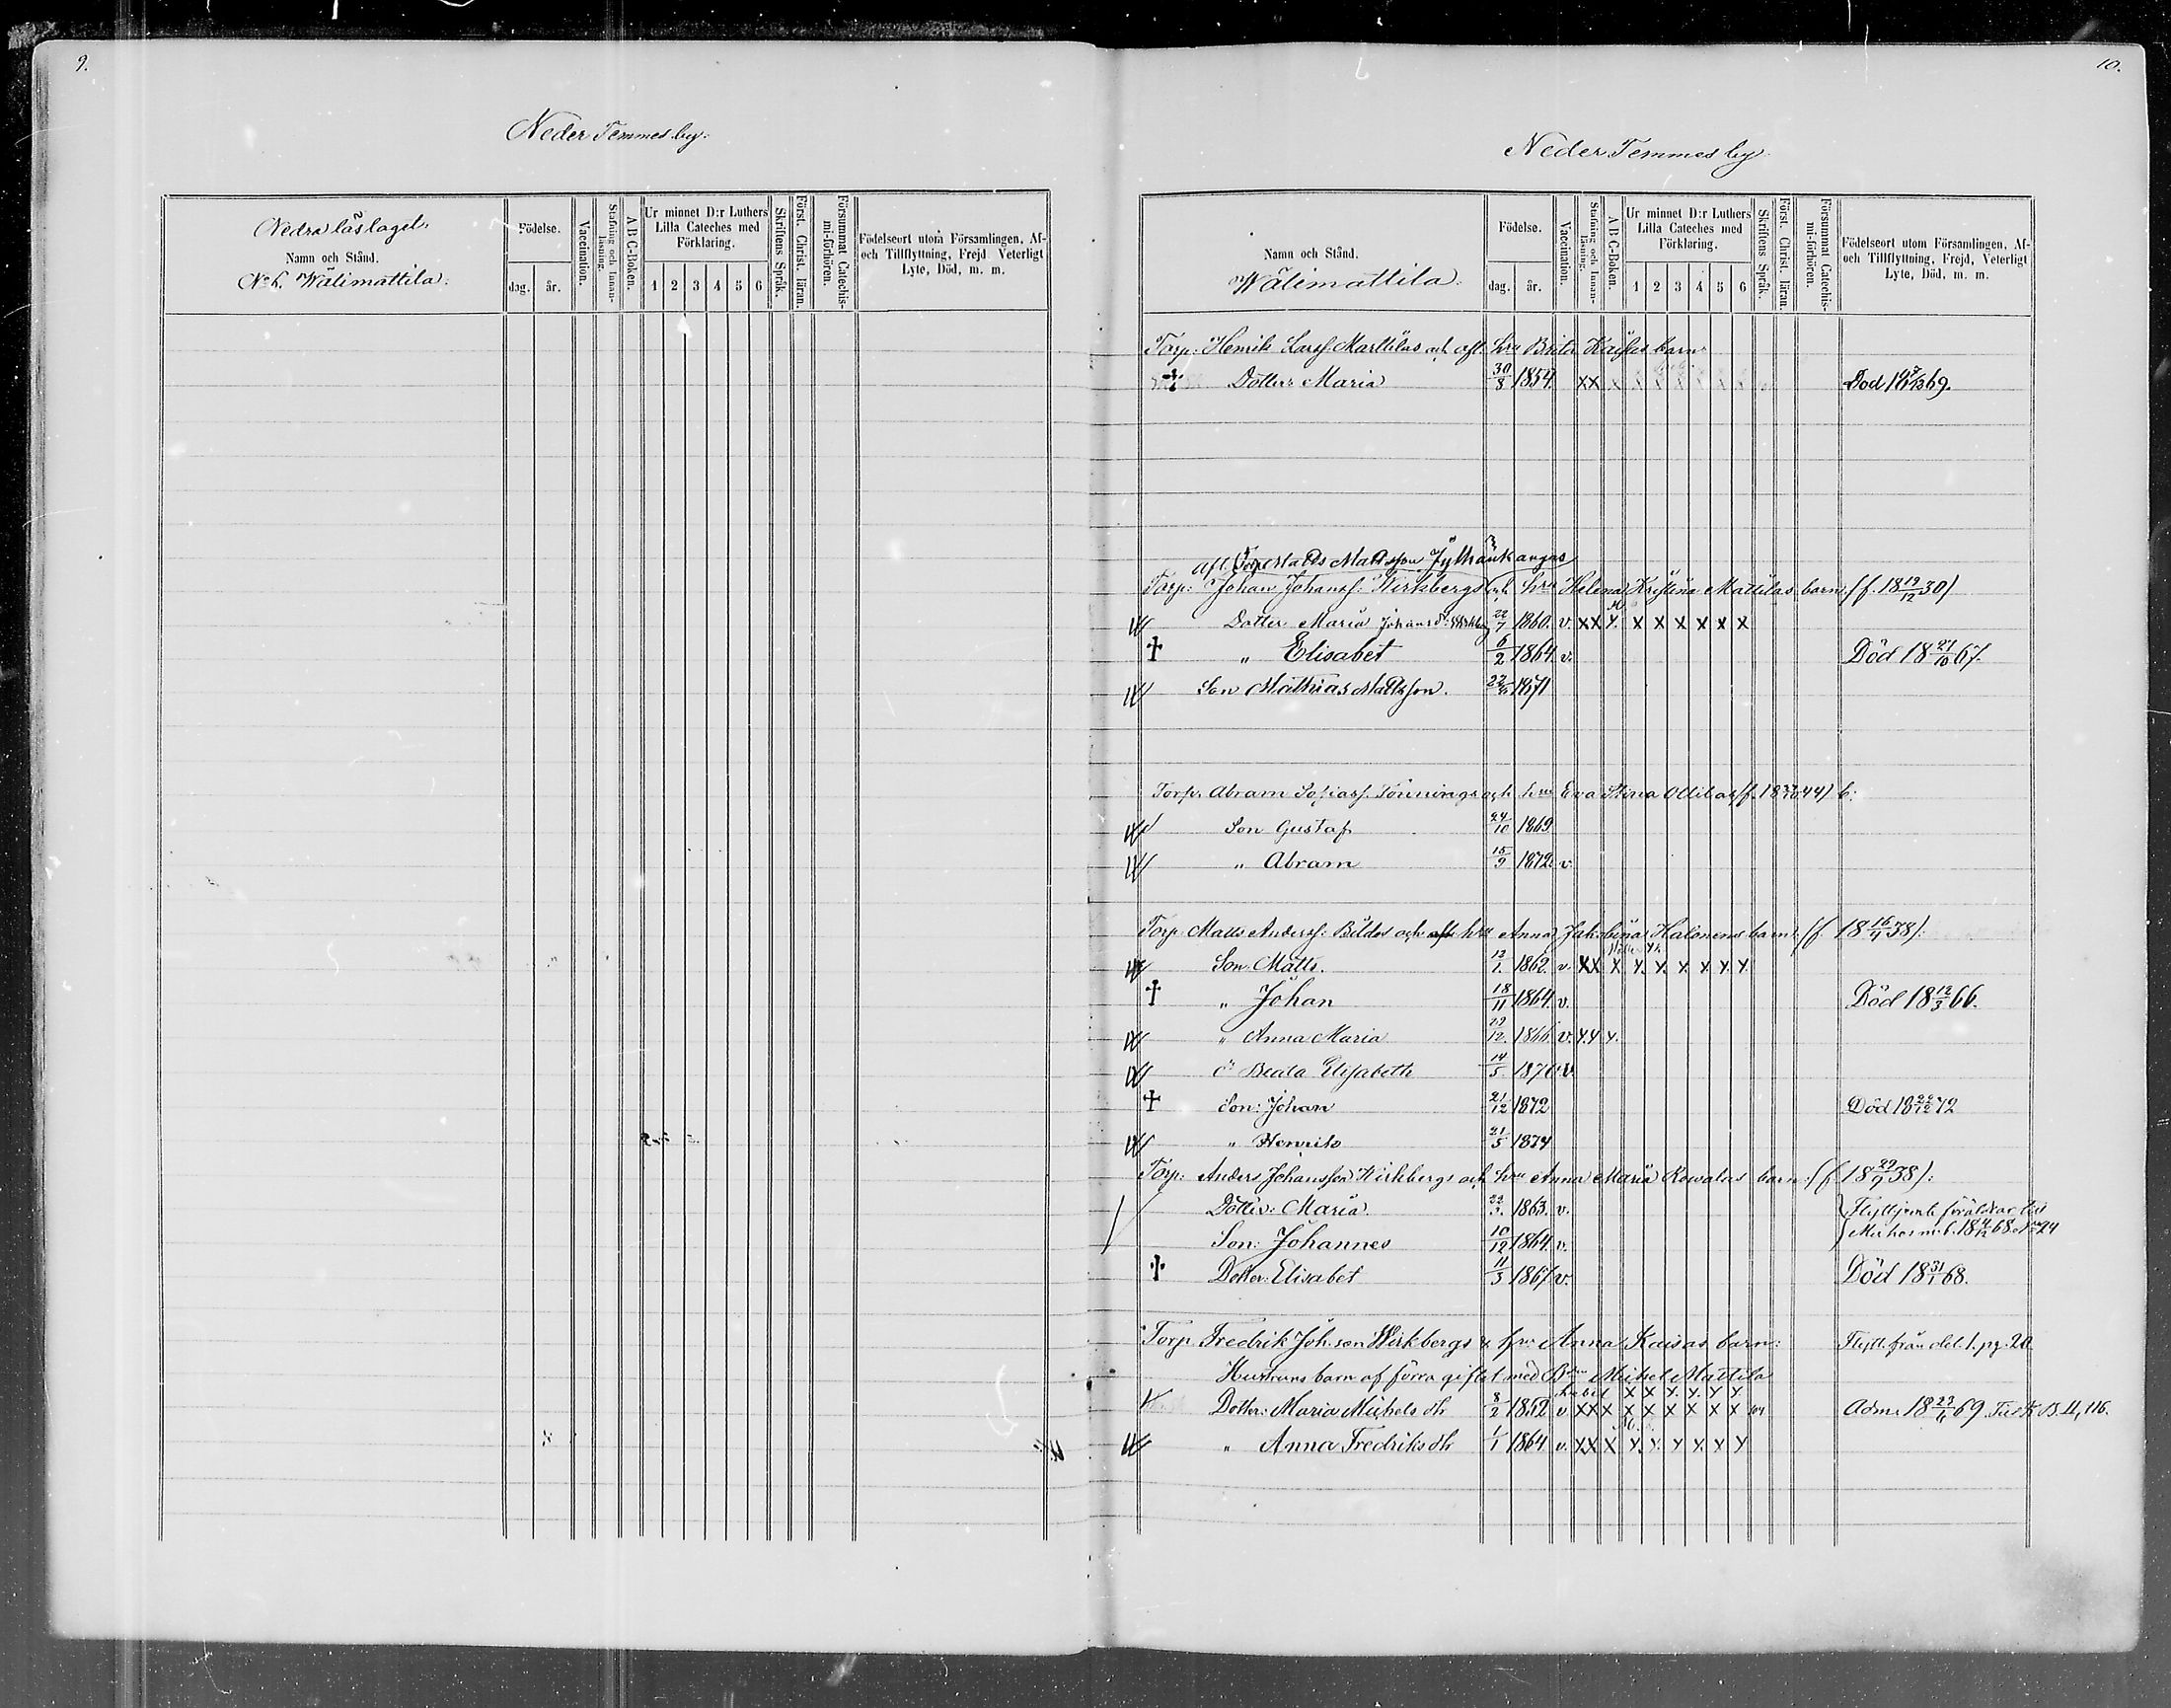 9.
Neder Temmes by.
Nedra läslaget.
Namn och Stånd.
Wälimattila.
Födelse.
dag. år.
Vaccination.
Stafning och Innanläsning.
A B C-Boken.
Ur minnet D:r Luthers Lilla Cateches med Förklaring.
1 2 3 4 5 6
Skriftens Språk.
Först. Christ. läran.
Försummat Catechismi-förhören.
Födelseort utom Församlingen, Af- och Tillflyttning, Frejd Veterligt Lyte, Död, m. m.
10.
Neder Temmes by.
Namn och Stånd.
Wälimattila.
Födelse.
dag. år.
Vaccination.
Stafning och Innanläsning.
A B C-Boken.
Ur minnet D:r Luthers Lilla Cateches med Förklaring.
1 2 3 4 5 6
Skriftens Språk.
Först. Christ. läran.
Försummat Catechismi-förhören.
Födelseort utom Församlingen, Af- och Tillflyttning, Frejd, Veterligt Lyte, Död, m. m.
Torp: Henrik Larss: Marttilas och afl. hru Brita Kajsas barn
Dotter Maria 30/8 1854. xx Död
afl. Torp Matts Mattsson
Torp: Johan Johanss: Wirkbergs och hru Helena Kristina Mattilas barn: (f. 18 19/12 30)
Dotter Maria Johans dr: 22/7 1860. v. x x x. x x x x x x
" Elisabet 6/2 1864 v. Död 18 27/10 67.
Son Mathias Mattsson. 1871
Torp. Abram hru Eva Stina
Son Gustaf 24/10 1869
" Abram 15/9 1872 v.
Torp Matts Anderss: och hru Anna Jakobina Halonens barn: (f. 18 16/7 38).
Son Matts. 12/1. 1862. v. xx x x. x. x x x x
" Johan 18/11 1864 v. Död 18 12/3 66.
" Anna Maria 1866 v. x.x x.
dr Beata Elisabeth 14/5 1870 v.
Son: Johan 21/12 1872 Död 18 72
" Henrik 21/5 1874
Torp: Anders Johansson Wirkbergs och hru Anna Maria Kowalas barn: (f. 18 29/7 38):
Dotter: Maria. 22/3. 1863. v. Flytt jemte föräldrar till
Son: Johannes 10/12 1864 v.
Dotter: Elisabet 11/3 1867 v. Död 18 31/1 68.
Torp. Fredrik Johsson Wirkbergs & hru Anna Kaisas barn: Flytt. från del. 1. pg. 20.
Hustruns barn af förra giftet med Mikel Mattila
x x x. x. x x.
Dotter: Maria Michels dr 8/2 1852 v xx x x x x x x x Adm. 18 69
" Anna Fredriks dr 1/1 1864 v. xx x x. x. x x. x x